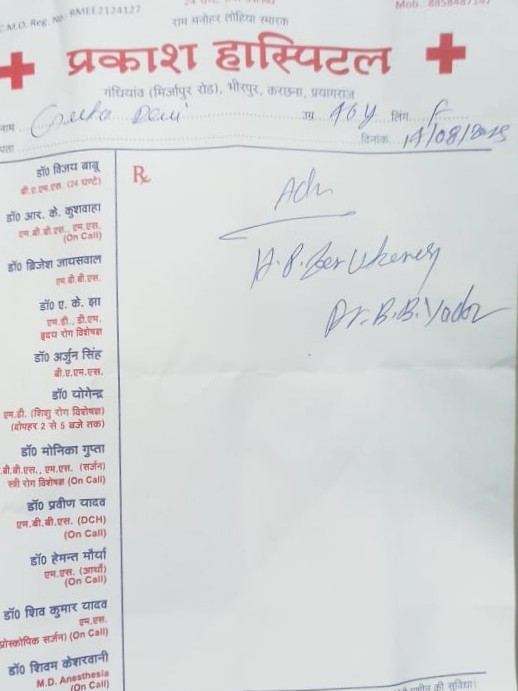 C.M.O. Reg. No. RMEE2124127
Mob.: 8858487147
राम मनोहर लोहिया स्मारक
प्रकाश हास्पिटल
गंधियांव (मिर्जापुर रोड), भीरपुर, कराछना, प्रयागराज
नाम Geeta Devi उम्र 46y लिंग F
पता दिनांक 14/08/2025
डॉ0 विजय बाबू
बी.ए.एम.एस. (24 घण्टे)
डॉ0 आर. के. कुशवाहा
एम.बी.बी.एस., एम.एस.
(On Call)
डॉ0 ब्रिजेश जायसवाल
एम.बी.बी.एस.
डॉ0 ए. के. झा
एम.डी., डी.एम.
हृदय रोग विशेषज्ञ
डॉ0 अर्जुन सिंह
बी.ए.एम.एस.
डॉ0 योगेन्द्र
एम.डी. (शिशु रोग विशेषज्ञ)
(दोपहर 2 से 5 बजे तक)
डॉ0 मोनिका गुप्ता
.बी.बी.एस., एम.एस. (सर्जन)
स्त्री रोग विशेषज्ञ (On Call)
डॉ0 प्रवीण यादव
एम.बी.बी.एस. (DCH)
(On Call)
डॉ0 हेमन्त मौर्या
एम.एस. (आर्थो)
(On Call)
डॉ0 शिव कुमार यादव
एम.एस.
प्रोस्कोपिक सर्जन) (On Call)
डॉ0 शिवम केशरवानी
M.D. Anesthesia
(On Call)
Rx
Adv
Dr. B.B. Yadav
की सुविधा।